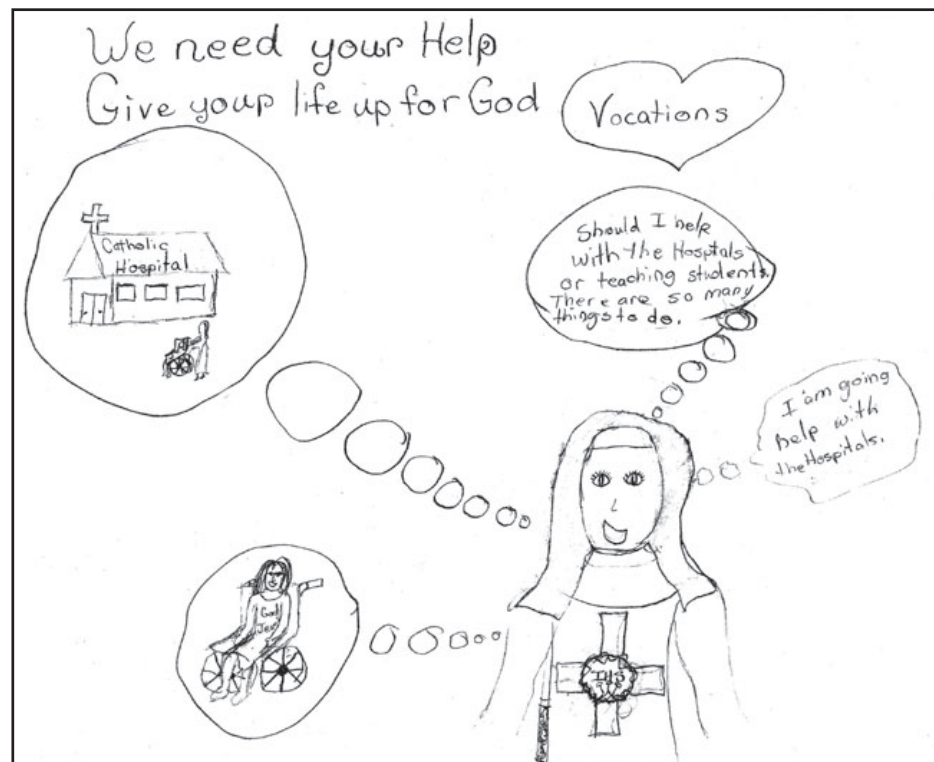 We need your Help
Give your life up for God
Vocations
Catholic
Hospital
Should I help
with the Hosptals
or teaching students.
There are so many
things to do.
I am going
help with
the Hospitals.
God
Jesu
IHS